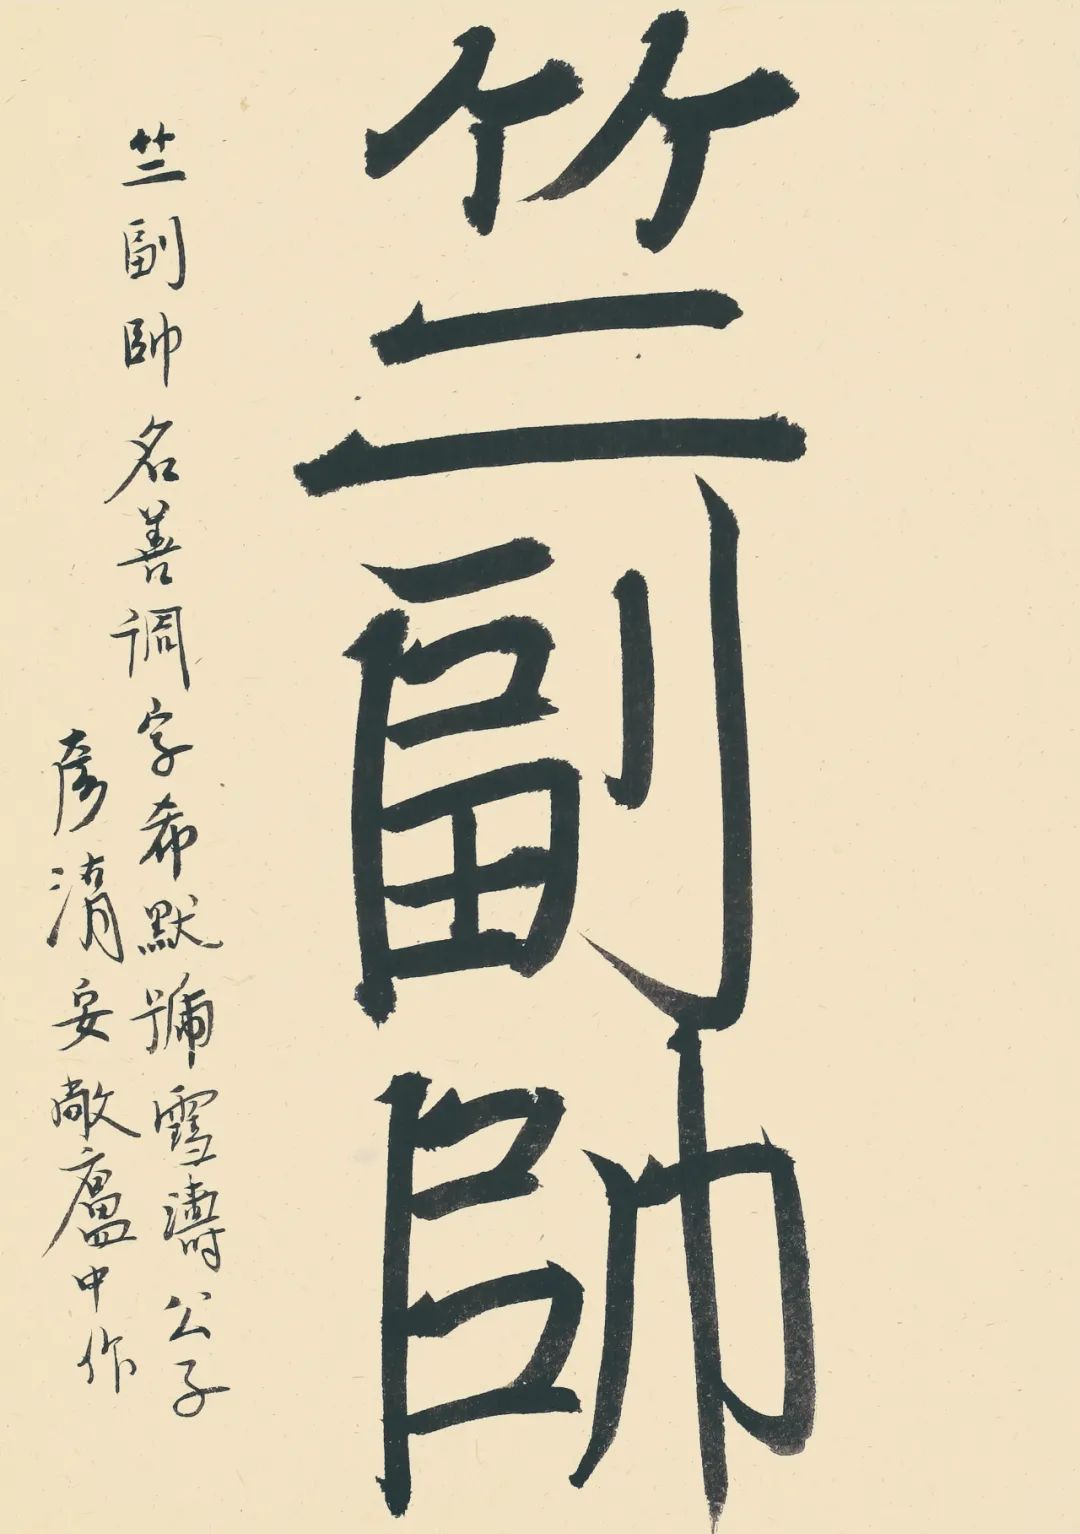 竺副帥
竺副帥名善調字希默號雪濤公子
彥清安敞廬中作